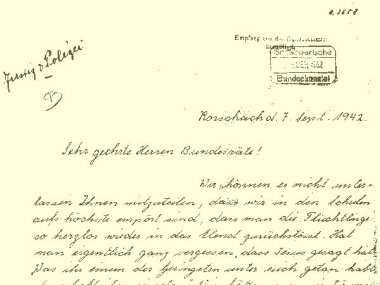 Justiz & Polizei
Schweizerische
Bundeskanzlei
Rorschach d. 7. Sept. 1942.
Sehr geehrte Herren Bundesräte!
Wir können es nicht unter-
lassen Ihnen mitzuteilen, dass wir in den Schulen
aufs höchste empört sind, dass man die Flüchtlinge
so herzlos wieder in das Elend zurückstösst. Hat
man eigentlich ganz vergessen, dass Jesus gesagt hat:
Was ihr einem der Geringsten unter euch getan habt,